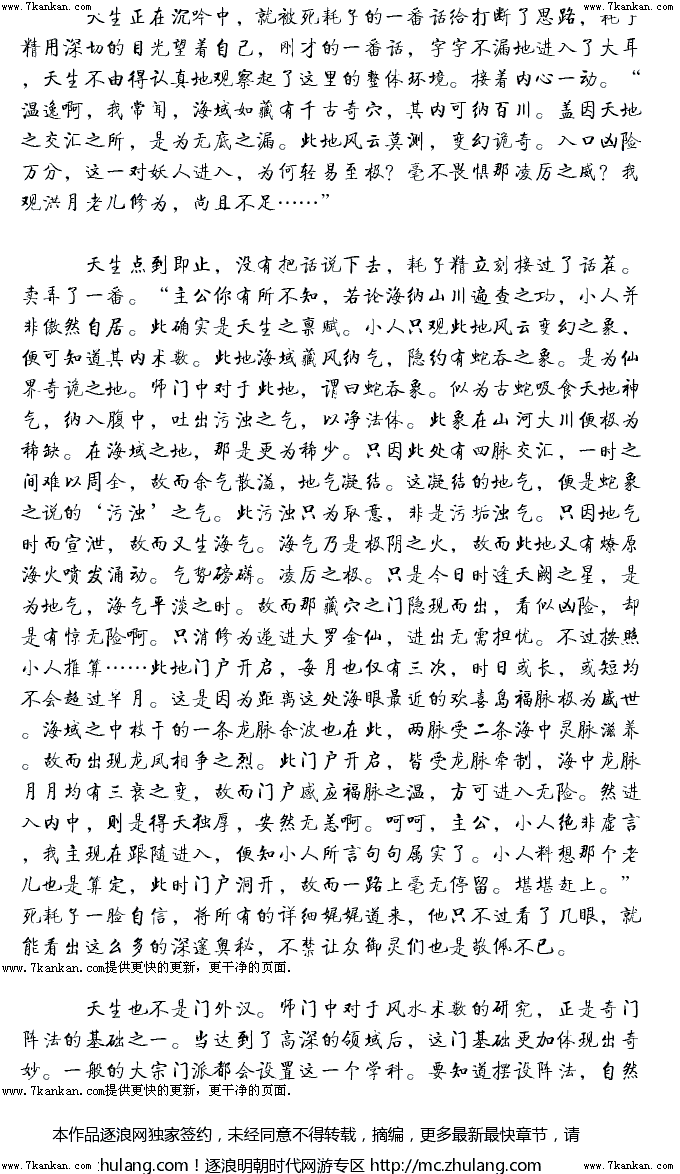 www.7kankan.com www.7kankan.com
天生正在沉吟中，就被死耗子的一番话给打断了思路，耗子
精用深切的目光望着自己，刚才的一番话，字字不漏地进入了大耳
，天生不由得认真地观察起了这里的整体环境。接着内心一动。“
温逸啊，我常闻，海域如藏有千古奇穴，其内可纳百川。盖因天地
之交汇之所，是为无底之漏。此地风云莫测，变幻诡奇。入口凶险
万分，这一对妖人进入，为何轻易至极？毫不畏惧那凌厉之威？我
观洪月老儿修为，尚且不足……”
天生点到即止，没有把话说下去，耗子精立刻接过了话茬。
卖弄了一番。“主公你有所不知，若论海纳山川遍查之功，小人并
非傲然自居。此确实是天生之禀赋。小人只观此地风云变幻之象，
便可知道其内术数。此地海域藏风纳气，隐约有蛇吞之象。是为仙
界奇诡之地。师门中对于此地，谓曰蛇吞象。似为古蛇吸食天地神
气，纳入腹中，吐出污浊之气，以净法体。此象在山河大川便极为
稀缺。在海域之地，那是更为稀少。只因此处有四脉交汇，一时之
间难以周全，故而余气散溢，地气凝结。这凝结的地气，便是蛇象
之说的‘污浊’之气。此污浊只为取意，非是污垢浊气。只因地气
时而宣泄，故而又生海气。海气乃是极阴之火，故而此地又有燎原
海火喷发涌动。气势磅礴。凌厉之极。只是今日时逢天阙之星，是
为地气，海气平淡之时。故而那藏穴之门隐现而出，看似凶险，却
是有惊无险啊。只消修为递进大罗金仙，进出无需担忧。不过按照
小人推算……此地门户开启，每月也仅有三次，时日或长，或短均
不会超过半月。这是因为距离这处海眼最近的欢喜岛福脉极为盛世
。海域之中枝干的一条龙脉余波也在此，两脉受二条海中灵脉滋养
。故而出现龙凤相争之烈。此门户开启，皆受龙脉牵制，海中龙脉
月月均有三衰之变，故而门户感应福脉之温，方可进入无险。然进
入内中，则是得天独厚，安然无恙啊。呵呵，主公，小人绝非虚言
，我主现在跟随进入，便知小人所言句句属实了。小人料想那个老
儿也是算定，此时门户洞开，故而一路上毫无停留。堪堪赶上。”
死耗子一脸自信，将所有的详细娓娓道来，他只不过看了几眼，就
能看出这么多的深邃奥秘，不禁让众御灵们也是敬佩不已。
www.7kankan.com提供更快的更新，更干净的页面.
天生也不是门外汉。师门中对于风水术数的研究，正是奇门
阵法的基础之一。当达到了高深的领域后，这门基础更加体现出奇
妙。一般的大宗门派都会设置这一个学科。要知道摆设阵法，自然
www.7kankan.com提供更快的更新，更干净的页面.
本作品逐浪网独家签约，未经同意不得转载，摘编，更多最新最快章节，请
www.7kankan.com zhulang.com！逐浪明朝时代网游专区 http://mc.zhulang.com www.7kankan.com